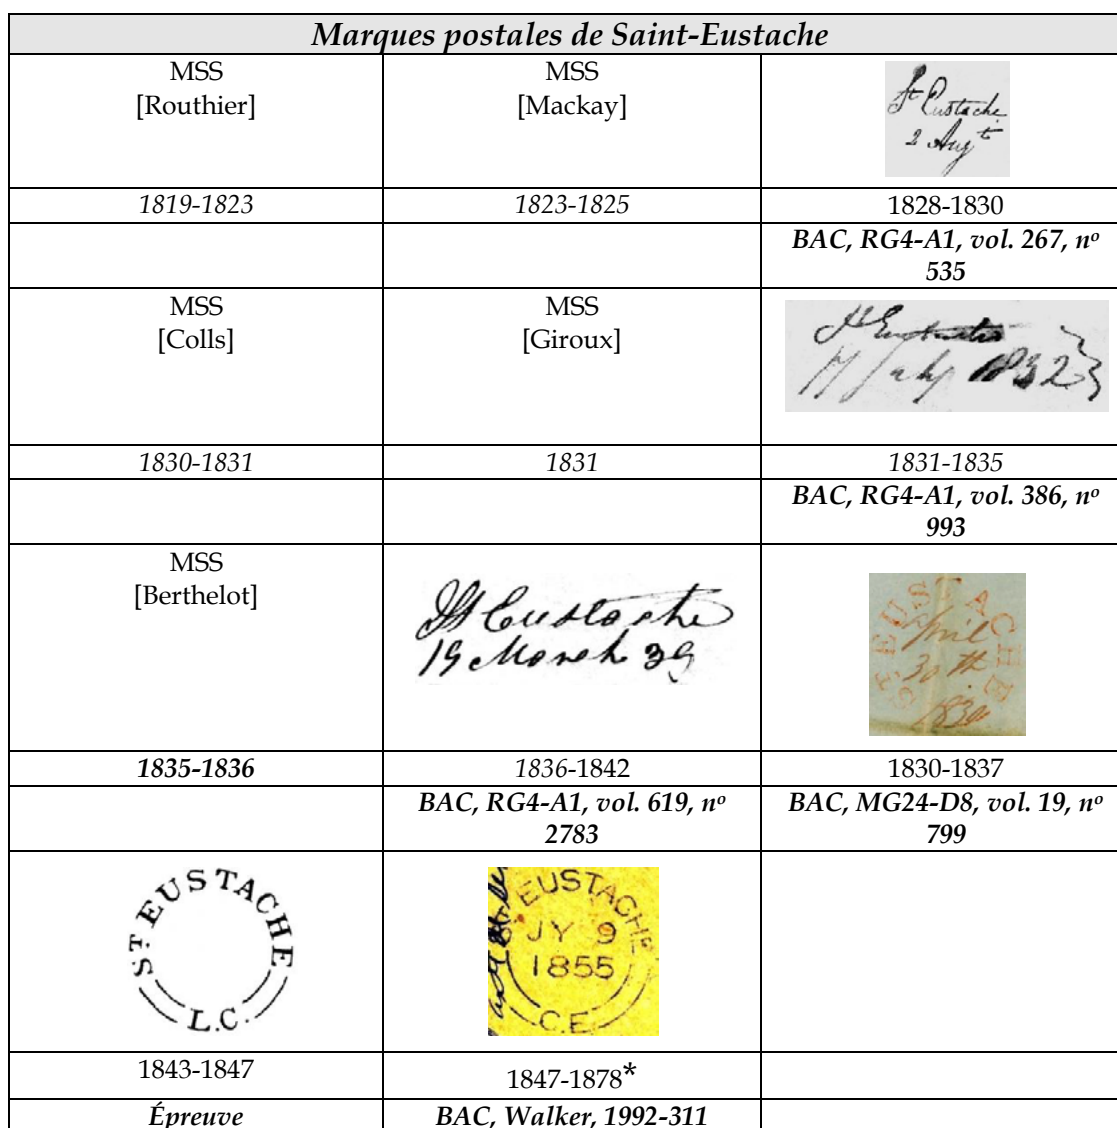 Marques postales de Saint-Eustache
MSS
[Routhier]
MSS
[Mackay]
St Eustache
2 Augt
1819-1823
1823-1825
1828-1830
BAC, RG4-A1, vol. 267, nº
535
MSS
[Colls]
MSS
[Giroux]
St Eustache
17 July 1832
1830-1831
1831
1831-1835
BAC, RG4-A1, vol. 386, nº
993
MSS
[Berthelot]
St Eustache
19 March 39
ST EUSTACHE
April
30th
1835-1836
1836-1842
1830-1837
BAC, RG4-A1, vol. 619, nº
2783
BAC, MG24-D8, vol. 19, nº
799
ST EUSTACHE
L.C.
EUSTACHE
JY 9
1855
C.E.
1843-1847
1847-1878*
Épreuve
BAC, Walker, 1992-311